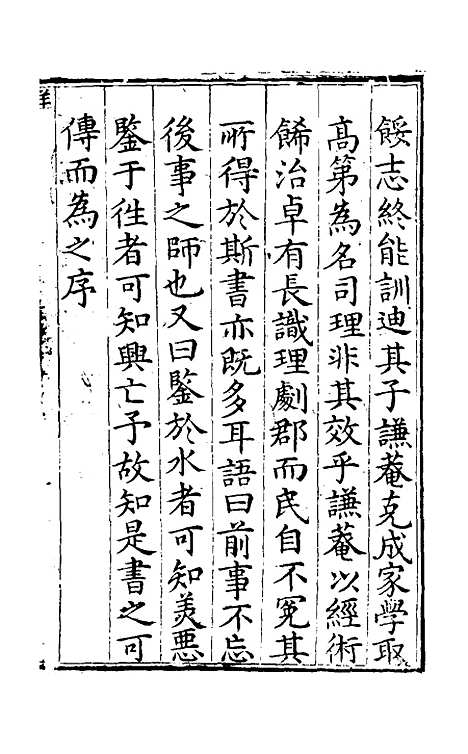 餒志終能訓迪其子謙菴克成家學取
高第為名司理非其效乎謙菴以經術
餙治卓有長識理劇郡而民自不冤其
所得於斯書亦既多耳語曰前事不忘
後事之師也又曰鑒於水者可知美惡
鑒于徃者可知興亡予故知是書之可
傳而為之序